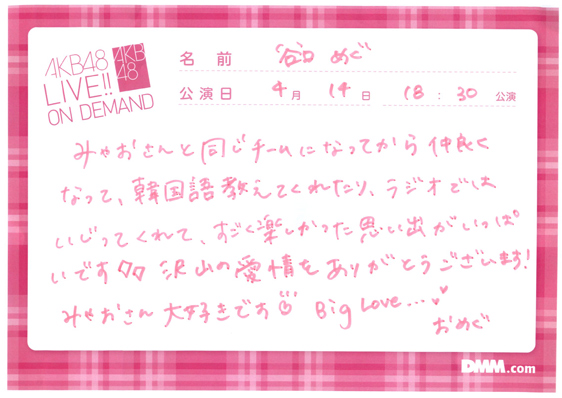 AKB48
LIVE!!
ON DEMAND
AKB
48
名前 谷口 めぐ
公演日 4月 14日 18:30 公演
みゃおさんと同じチームになってから仲良く
なって、韓国語教えてくれたり、ラジオでは
いじってくれて、すごく楽しかった思い出がいっぱ
いです 沢山の愛情をありがとうございます!
みゃおさん大好きです Big Love...
おめぐ
DMM.com